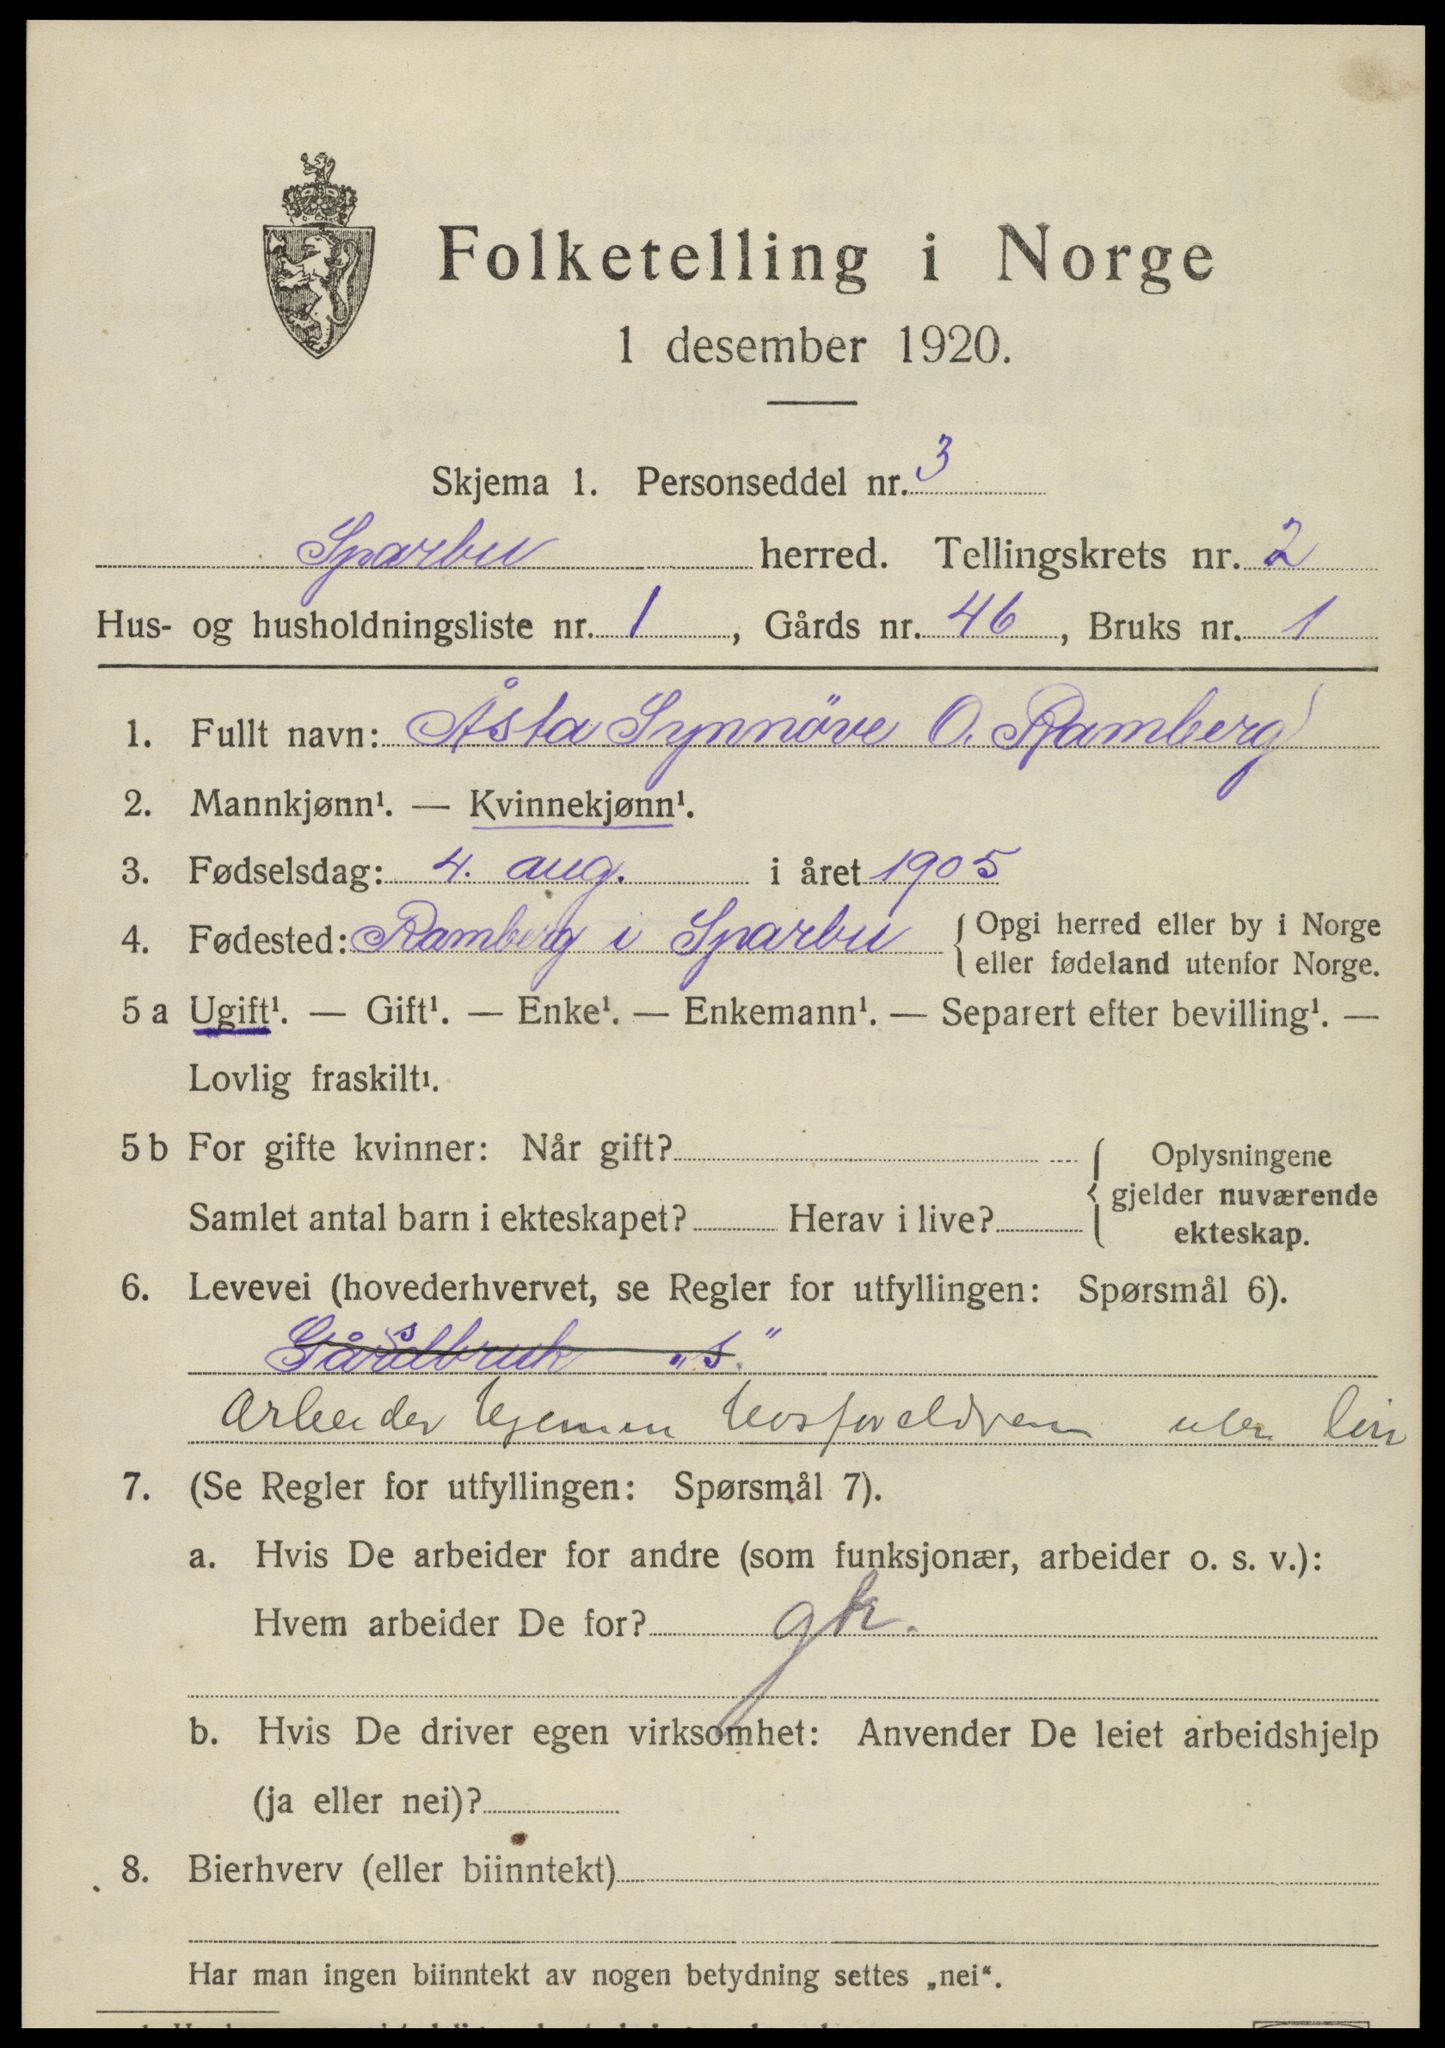 Folketelling i Norge
1 desember 1920.
Skjema 1. Personseddel nr. 3
Sparbu herred. Tellingskrets nr. 2
Hus- og husholdningsliste nr. 1, Gårds nr. 46, Bruks nr. 1
1. Fullt navn: Åsta Synnöve O. Ramberg
2. Mannkjønn¹. — Kvinnekjønn¹.
3. Fødselsdag: 4. aug. i året 1905
4. Fødested: Ramberg i Sparbu { Opgi herred eller by i Norge
eller fødeland utenfor Norge.
5 a Ugift¹. — Gift¹. — Enke¹. — Enkemann¹. — Separert efter bevilling¹. —
Lovlig fraskilt¹.
5 b For gifte kvinner: Når gift? { Oplysningene
gjelder nuværende
ekteskap.
Samlet antal barn i ekteskapet? Herav i live?
6. Levevei (hovederhvervet, se Regler for utfyllingen: Spørsmål 6).
Gårdsbruk "s"
Arbeider hjemme hos foreldrene uten
7. (Se Regler for utfyllingen: Spørsmål 7).
a. Hvis De arbeider for andre (som funksjonær, arbeider o. s. v.):
Hvem arbeider De for? gk.
b. Hvis De driver egen virksomhet: Anvender De leiet arbeidshjelp
(ja eller nei)?
8. Bierhverv (eller biinntekt)
Har man ingen biinntekt av nogen betydning settes „nei“.